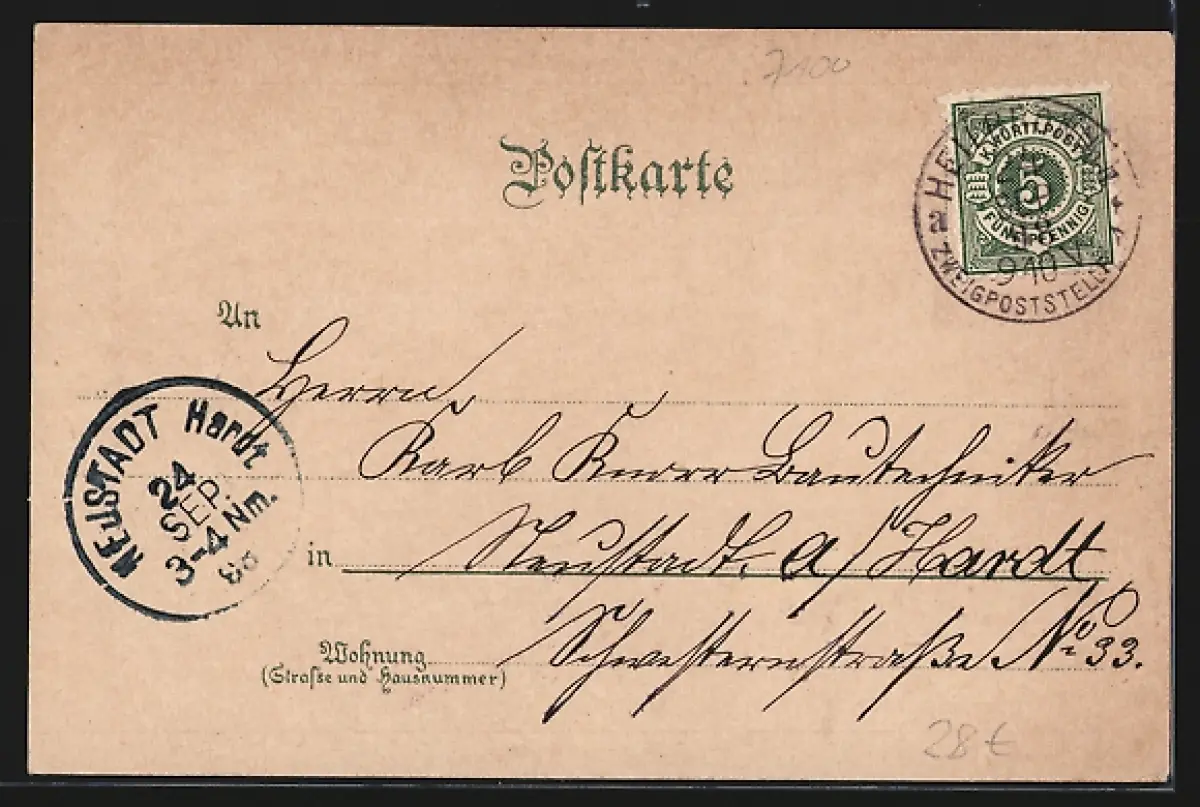 7100
Postkarte
K. WÜRTT. POST
5
FÜNF PFENNIG
a
9-10 V
ZWEIGPOSTSTELLE
An
Herrn
Karl Knorr Bautechniker
in Neustadt. a/Hardt
Wohnung Schwesternstraße No 33.
(Straße und Hausnummer)
NEUSTADT Hardt
24
SEP.
3-4 Nm.
28 €